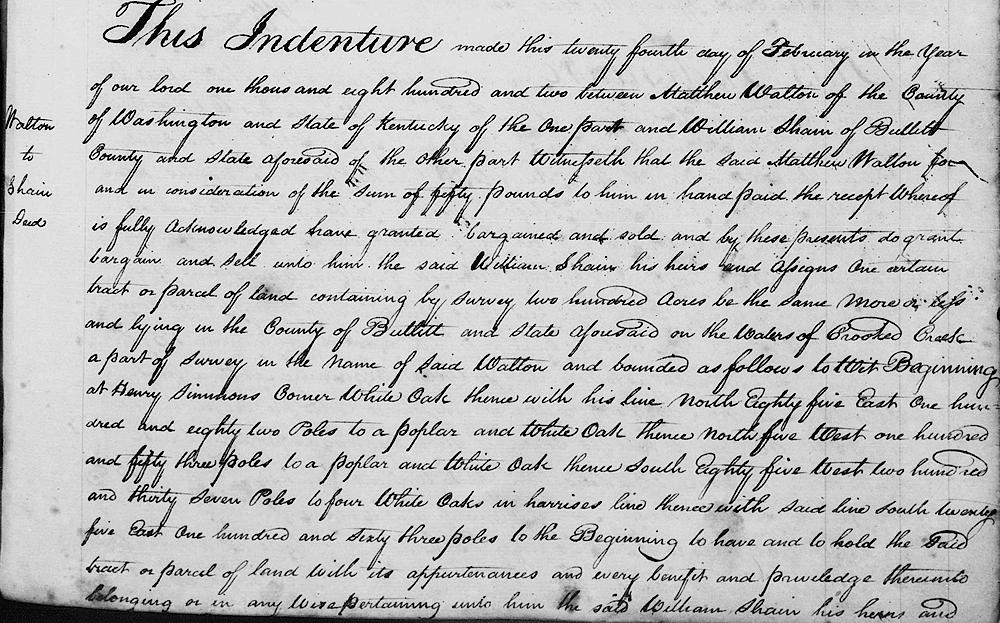 This Indenture made this twenty fourth day of February in the Year
of our lord one thousand eight hundred and two between Matthew Walton of the County
of Washington and State of Kentucky of the One part and William Shain of Bullitt
County and State aforesaid of the Other part Witnesseth that the said Matthew Walton for
and in consideration of the Sum of fifty pounds to him in hand paid the recept Whereof
is fully Acknowledged have granted bargained and sold and by these presents do grant
bargain and sell unto him the said William Shain his heirs and Assigns One certain
tract or parcel of land containing by survey two hundred Acres be the same more or less
and lying in the County of Bullitt and State aforesaid on the Waters of Crooked Creek
a part of survey in the Name of said Walton and bounded as follows to Wit Beginning
at Henry Simmons Corner White Oak thence with his line North Eighty five East One hun-
dred and eighty two Poles to a poplar and White Oak thence North five West one hundred
and fifty three poles to a poplar and White Oak thence South Eighty five West two hundred
and thirty Seven Poles to four White Oaks in harrises line thence with said line south twenty
five East One hundred and sixty three poles to the Beginning to have and to hold the Said
tract or parcel of land with its appurtenances and every benefit and priveledge thereunto
belonging or in any Wise pertaining unto him the said William Shain his heirs and
Walton
to
Shain
Deed